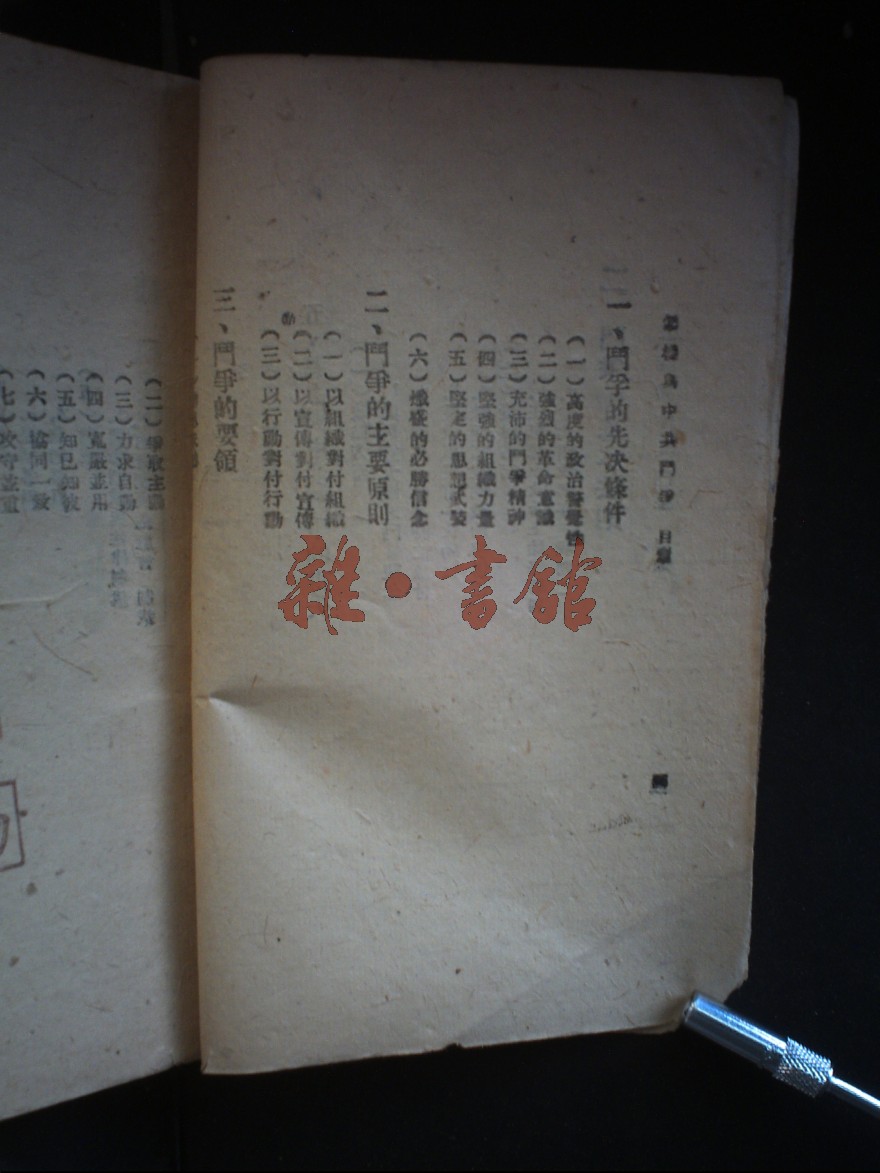 怎樣與中共鬥爭 目錄
一、鬥爭的先決條件
(一)高度的政治警覺性
(二)強烈的革命意識
(三)充沛的鬥爭精神
(四)堅強的組織力量
(五)堅定的思想武裝
(六)熾盛的必勝信念
二、鬥爭的主要原則
(一)以組織對付組織
(二)以宣傳對付宣傳
(三)以行動對付行動
三、鬥爭的要領
(二)爭取主動
(三)力求自動
(四)寬嚴並用
(五)知己知彼
(六)協同一致
(七)攻守並重
雜·書館